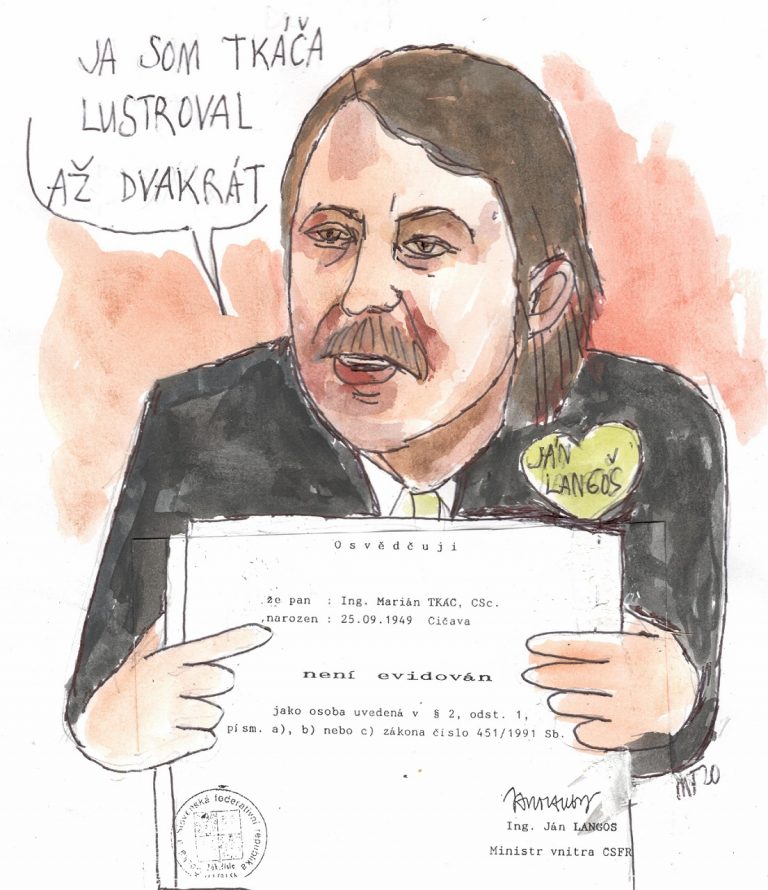 JA SOM TKÁČA
LUSTROVAL
AŽ DVAKRÁT
JÁN
LANGOŠ
Osvědčuji
že pan : Ing. Marián TKÁČ, CSc.
narozen : 25.09.1949 Cičava
není evidován
jako osoba uvedená v § 2, odst. 1,
písm. a), b) nebo c) zákona číslo 451/1991 Sb.
slovenská federativní republika
Ing. Ján LANGOŠ
Ministr vnitra ČSFR
MT20